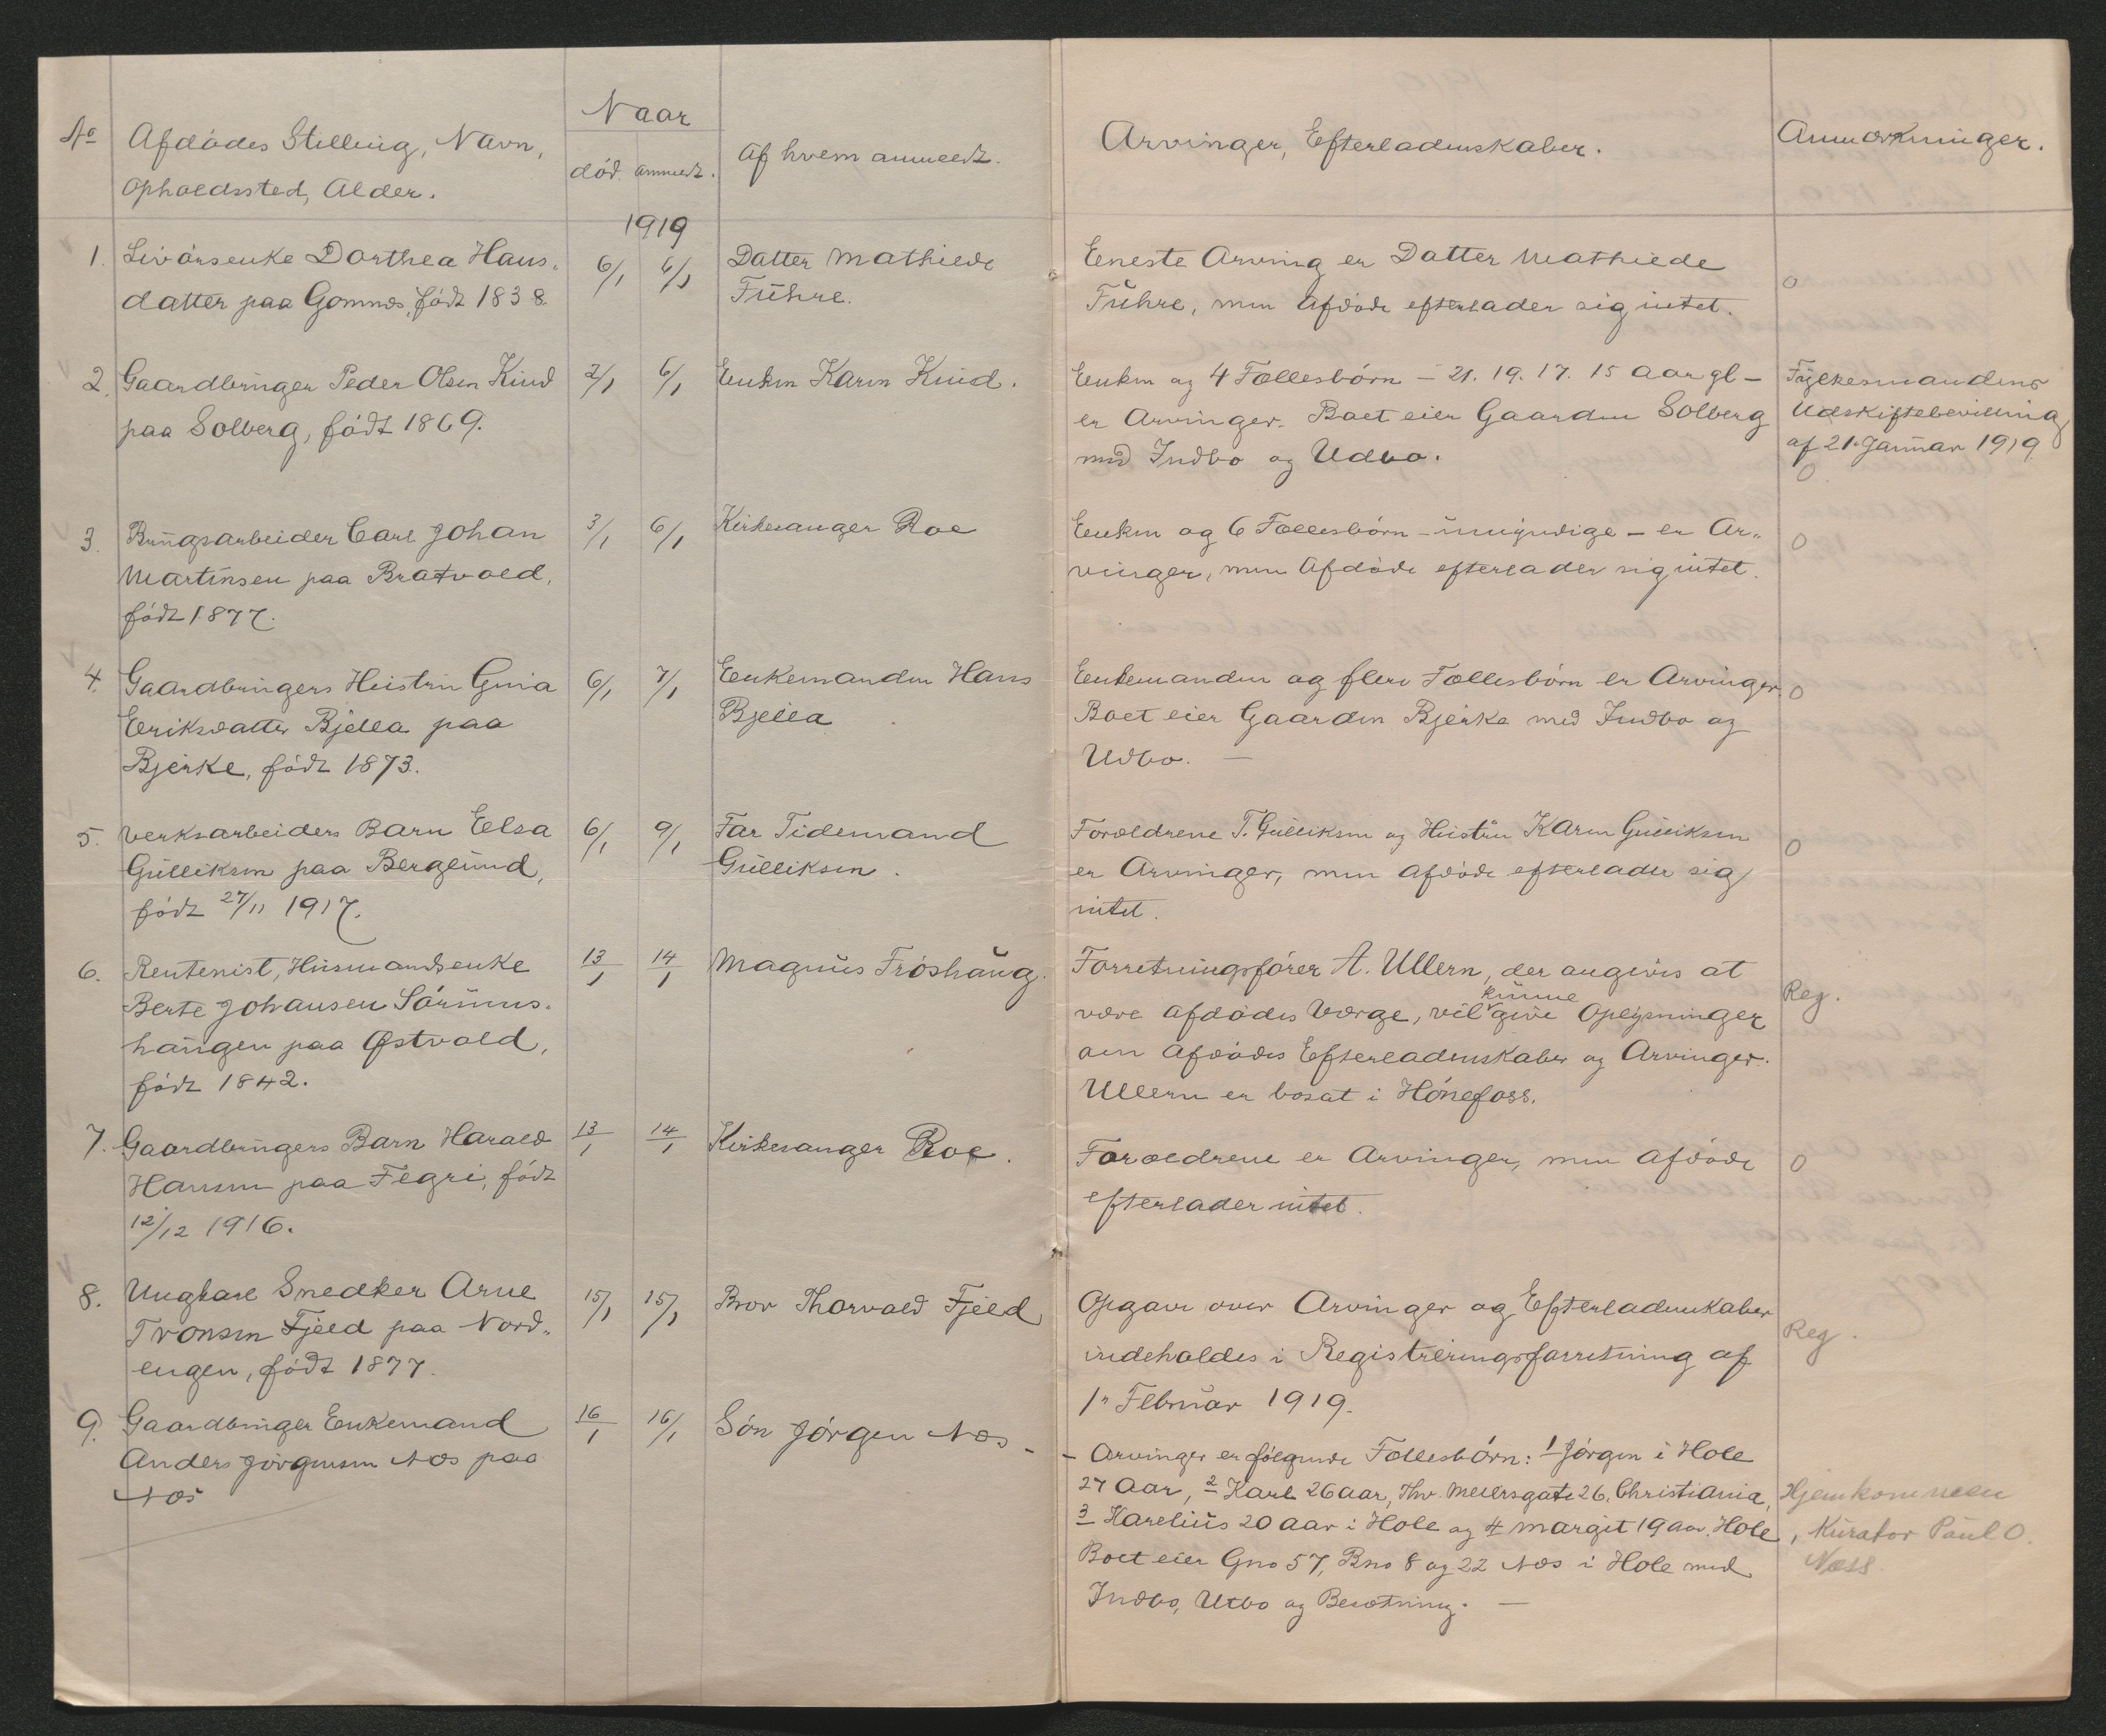 No
Afdødes Stilling, Navn,
Opholdssted, Alder.
Naar
død. anmeldt.
Af hvem anmeldt.
Arvinger, Efterladenskaber.
Anmærkninger.
1919
1. Livørsenke Dorthea Hans-
datter paa Gomnæs, født 1838.
6/1 6/1
Datter Mathilde
Fuhre.
Eneste Arving er Datter Mathilde
Fuhre, men Afdøde efterlader sig intet.
0
2. Gaardbruger Peder Olsen Kind
paa Solberg, født 1869.
2/1 6/1
Enken Karen Kind.
Enken og 4 Fællesbørn - 21. 19. 17. 15 Aar gl -
er Arvinger. Boet eier Gaarden Solberg
med Indbo og Udbo.
Fylkesmandens
Udskiftebevilling
af 21. Januar 1919.
0
3. Brugsarbeider Carl Johan
Martinsen paa Bratvold,
født 1877.
3/1 6/1
Kirkesanger Roe
Enken og 6 Fællesbørn - umyndige - er Ar-
vinger, men Afdøde efterlader sig intet.
0
4. Gaardbrugers Hustru Guria
Eriksdatter Bjella paa
Bjerke, født 1873.
6/1 7/1
Enkemanden Hans
Bjella
Enkemanden og flere Fællesbørn er Arvinger.
Boet eier Gaarden Bjerke med Indbo og
Udbo. —
0
5. Verksarbeiders Barn Elsa
Gulliksen paa Berglund,
født 27/11 1917.
6/1 9/1
Far Tidemand
Gulliksen.
Forældrene T. Gulliksen og Hustru Karen Gulliksen
er Arvinger, men afdøde efterlader sig
intet.
0
6. Rentenist, Husmandsenke
Berte Johansen
haugen paa Østvold,
født 1842.
13/1 14/1
Magnus Frøshaug.
Forretningsfører A. Ullern, der angives at
være afdødes Værge, vil kunne give Oplysninger
om Afdødes Efterladenskaber og Arvinger.
Ullern er bosat i Hønefoss.
Reg.
7. Gaardbrugers Barn Harald
Hansen paa Fegri, født
12/12 1916.
13/1 14/1
Kirkesanger Roe.
Forældrene er Arvinger, men Afdøde
efterlader intet.
0
8. Ungkarl Snedker Arne
Tronsen Fjeld paa Nord-
engen, født 1877.
15/1 15/1
Bror Thorvald Fjeld
Opgave over Arvinger og Efterladenskaber
indeholdes i Registreringsforretning af
1" Februar 1919.
Reg.
9. Gaardbruger Enkemand
Anders Jørgensen Næs paa
Næs
16/1 16/1
Søn Jørgen Næs -
- Arvinger er følgende Fællesbørn: 1 Jørgen i Hole
27 Aar, 2 Karl 26 aar, Thv. Meiersgate 26, Christiania,
3 Karelius 20 aar i Hole og 4 Margit 19 aar. Hole
Boet eier Gno 57, Bno 8 og 22 Næs i Hole med
Indbo, Utbo og Besætning. —
Hjemkommen
, Kurator Paul O.
Næss.